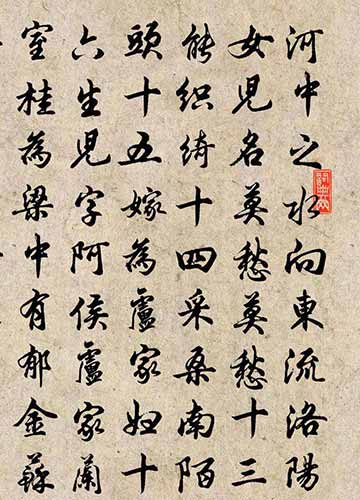 河中之水向東流洛陽
女兒名莫愁莫愁十三
能織綺十四采桑南陌
頭十五嫁為盧家婦十
六生兒字阿侯盧家蘭
室桂為梁中有郁金蘇